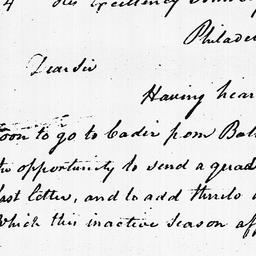 His Excellency
Philade
Dear Sir
Having hear
soon to go to Cadiz from Balt
the opportunity to send a quad
last letter, and to add thereto
Which this inactive season aff